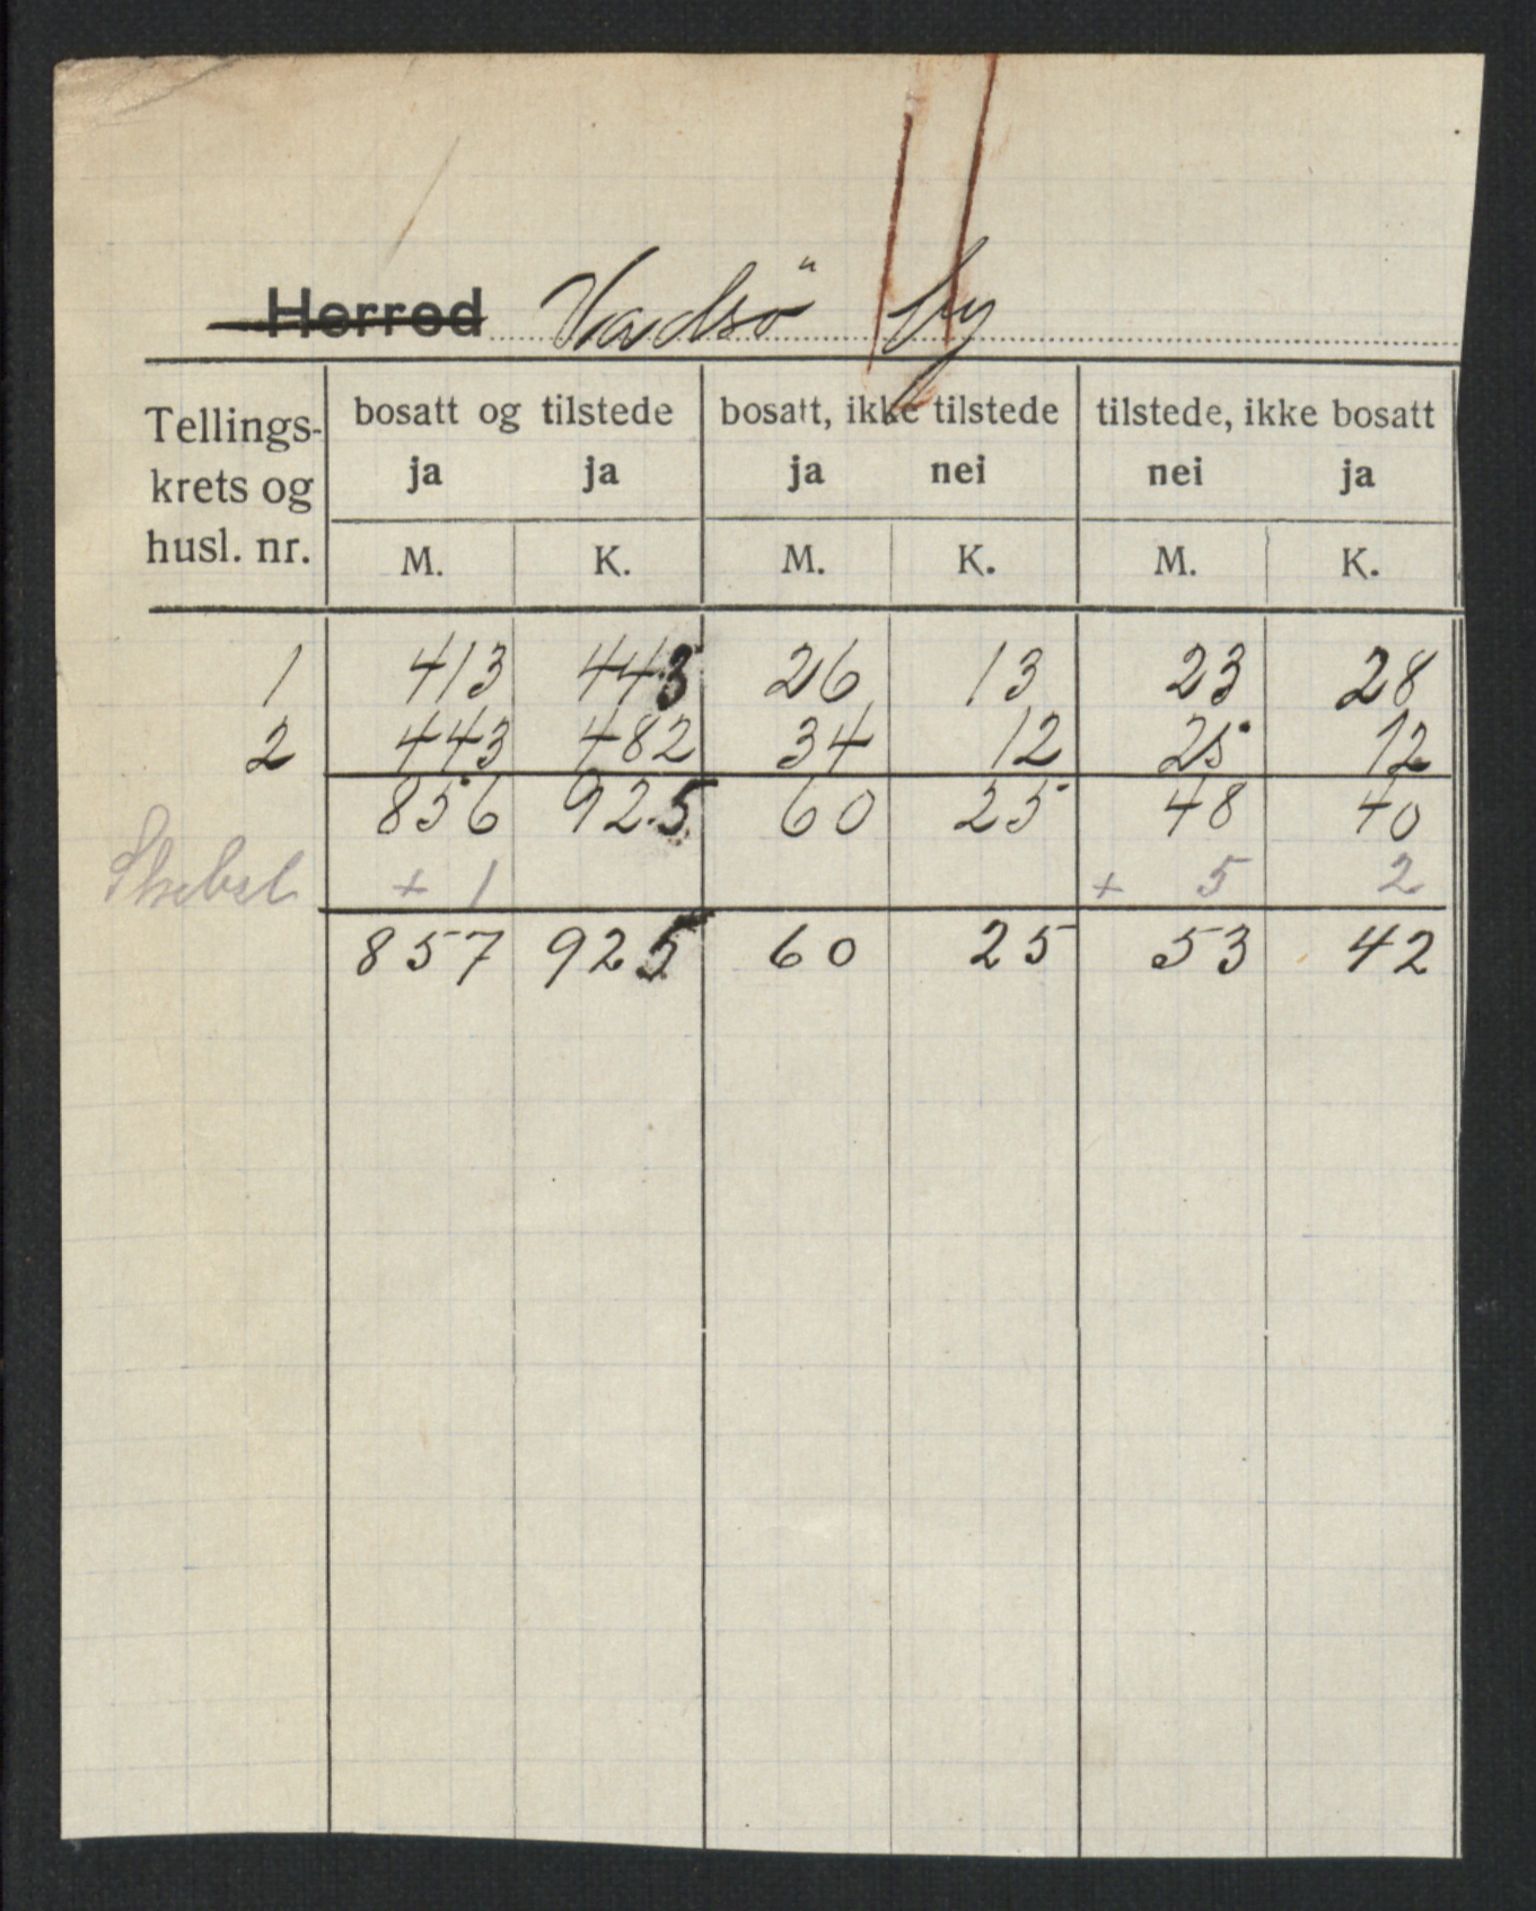 Herred Vadsö by
Tellings- bosatt og tilstede bosatt, ikke tilstede tilstede, ikke bosatt
krets og ja ja ja nei nei ja
husl. nr. M. K. M. K. M. K.
1 413 443 26 13 23 28
2 443 482 34 12 25 12
856 925 60 25 48 40
+ 1 + 5 2
857 925 60 25 53 42